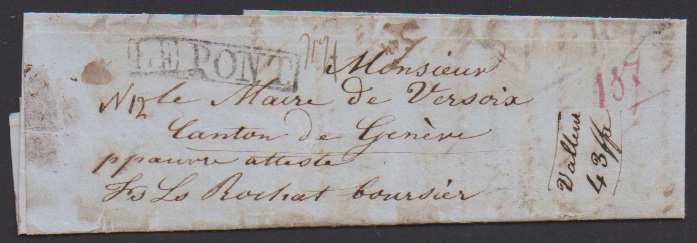 LE PONT
Monsieur
le Maire de Versoix
Canton de Genève
ppauvre atteste
Fs Ls Rochat boursier
Valleur
43 ffr
137